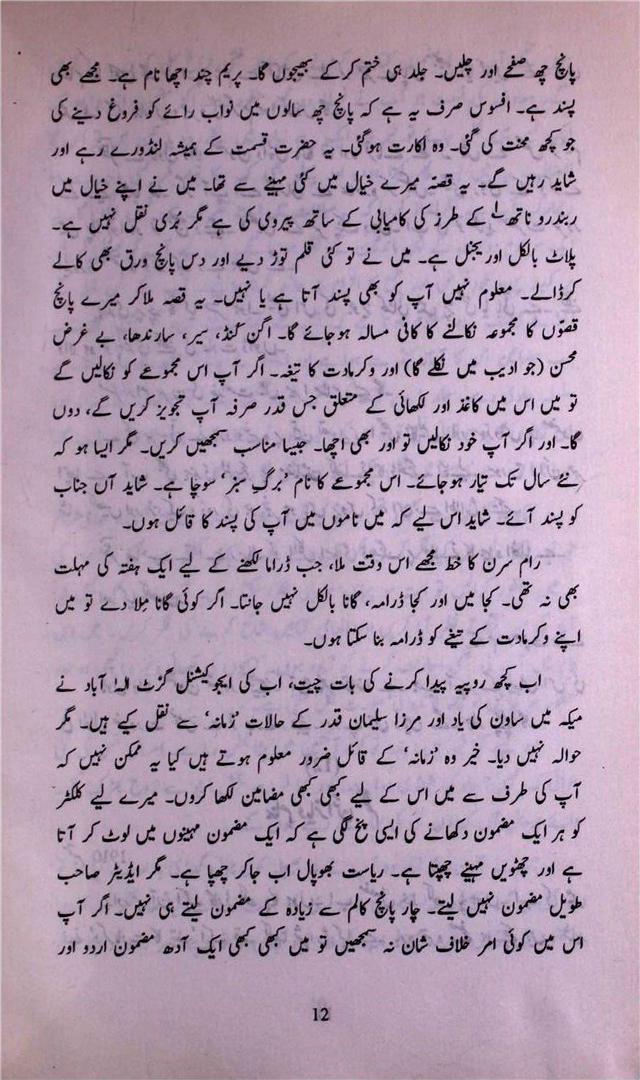 پانچ چھ صفحے اور چلیں۔ جلد ہی ختم کرکے بھیجوں گا۔ پریم چند اچھا نام ہے۔ مجھے بھی
پسند ہے۔ افسوس صرف یہ ہے کہ پانچ چھ سالوں میں نواب رائے کو فروغ دینے کی
جو کچھ محنت کی گئی۔ وہ اکارت ہوگئی۔ یہ حضرت قسمت کے ہمیشہ لنڈورے رہے اور
شاید رہیں گے۔ یہ قصّہ میرے خیال میں کئی مہینے سے تھا۔ میں نے اپنے خیال میں
ربندرو ناتھ۱ کے طرز کی کامیابی کے ساتھ پیروی کی ہے مگر بُری نقل نہیں ہے۔
پلاٹ بالکل اوریجنل ہے۔ میں نے تو کئی قلم توڑ دیے اور دس پانچ ورق بھی کالے
کرڈالے۔ معلوم نہیں آپ کو بھی پسند آتا ہے یا نہیں۔ یہ قصہ ملاکر میرے پانچ
قصّوں کا مجموعہ نکالنے کا کافی مسالہ ہوجائے گا۔ اگن کنڈ، سیر، سارندھا، بے غرض
محسن (جو ادیب میں نکلے گا) اور وکرمادت کا تیغہ۔ اگر آپ اس مجموعے کو نکالیں گے
تو میں اس میں کاغذ اور لکھائی کے متعلق جس قدر صرفہ آپ تجویز کریں گے، دوں
گا۔ اور اگر آپ خود نکالیں تو اور بھی اچھا۔ جیسا مناسب سمجھیں کریں۔ مگر ایسا ہو کہ
نئے سال تک تیار ہوجائے۔ اس مجموعے کا نام ’برگِ سبز‘ سوچا ہے۔ شاید آں جناب
کو پسند آئے۔ شاید اس لیے کہ میں ناموں میں آپ کی پسند کا قائل ہوں۔
رام سرن کا خط مجھے اس وقت ملا، جب ڈراما لکھنے کے لیے ایک ہفتہ کی مہلت
بھی نہ تھی۔ کجا میں اور کجا ڈرامہ، گانا بالکل نہیں جانتا۔ اگر کوئی گانا مِلا دے تو میں
اپنے وکرمادت کے تیغے کو ڈرامہ بنا سکتا ہوں۔
اب کچھ روپیہ پیدا کرنے کی بات چیت، اب کی ایجوکیشنل گزٹ الہٰ آباد نے
میکہ میں ساون کی یاد اور مرزا سلیمان قدر کے حالات ’زمانہ‘ سے نقل کیے ہیں۔ مگر
حوالہ نہیں دیا۔ خیر وہ ’زمانہ‘ کے قائل ضرور معلوم ہوتے ہیں کیا یہ ممکن نہیں کہ
آپ کی طرف سے میں اس کے لیے کبھی کبھی مضامین لکھا کروں۔ میرے لیے کلکٹر
کو ہر ایک مضمون دکھانے کی ایسی پخ لگی ہے کہ ایک مضمون مہینوں میں لوٹ کر آتا
ہے اور چھٹویں مہینے چھپتا ہے۔ ریاست بھوپال اب جاکر چھپا ہے۔ مگر ایڈیٹر صاحب
طویل مضمون نہیں لیتے۔ چار پانچ کالم سے زیادہ کے مضمون لیتے ہی نہیں۔ اگر آپ
اس میں کوئی امر خلاف شان نہ سمجھیں تو میں کبھی کبھی ایک آدھ مضمون اردو اور
12